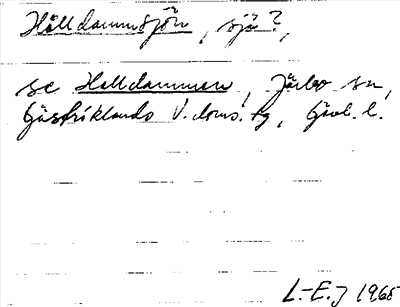 Hålldammsjön, sjö?,
se Holldammen, Järbo sn,
Gästriklands V. doms. tg, Gävl. l.
L.-E.J 1965